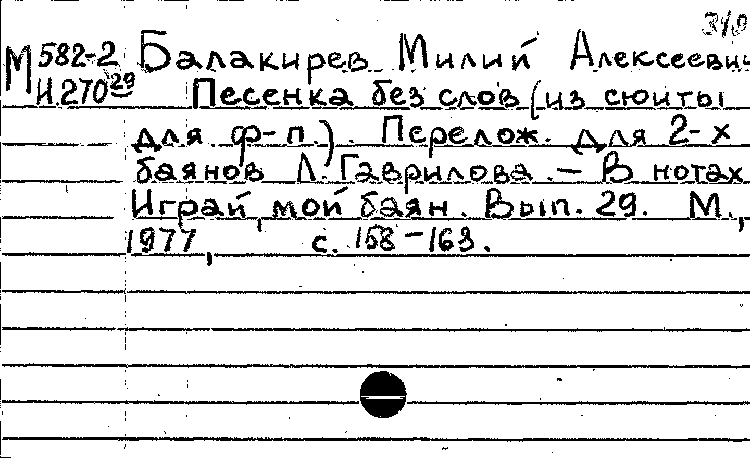 М 582-2 Балакирев Милий Алексеевич
И.270 29 Песенка без слов (из сюиты
для ф-п.). Перелож. для 2-х
баянов Л. Гаврилова. – В нотах
Играй, мой баян. Вып. 29. М.,
1977, с. 158-163.